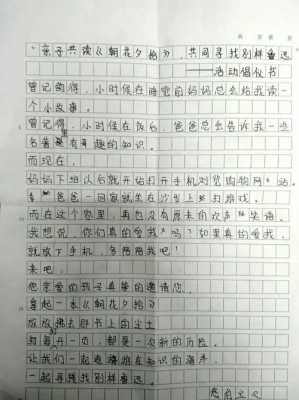 亲子共读《朝花夕拾》，共同寻找别样鲁迅
——活动倡议书
曾记的得，小时候在睡觉前妈妈总会给我读一
个小故事。
曾记得，小时候在饭后，爸爸总会告诉我一些
名著里有趣的知识。
而现在，
妈妈下班以后就开始打开手机浏览购物网站，
爸爸一回家就坐在沙发上打游戏。
而在这个家里，再也没有原来的欢声笑语。
我想说，你们真的爱我吗？如果真的爱我，
就放下手机，多陪陪我吧！
来吧，
您亲爱的孩子真挚的邀请您，
拿起一本《朝花夕拾》
放拂去那书上的尘土
翻每一页，都是一次新的历险。
让我们一起遨游在知识的海洋
一起寻找别样鲁迅。